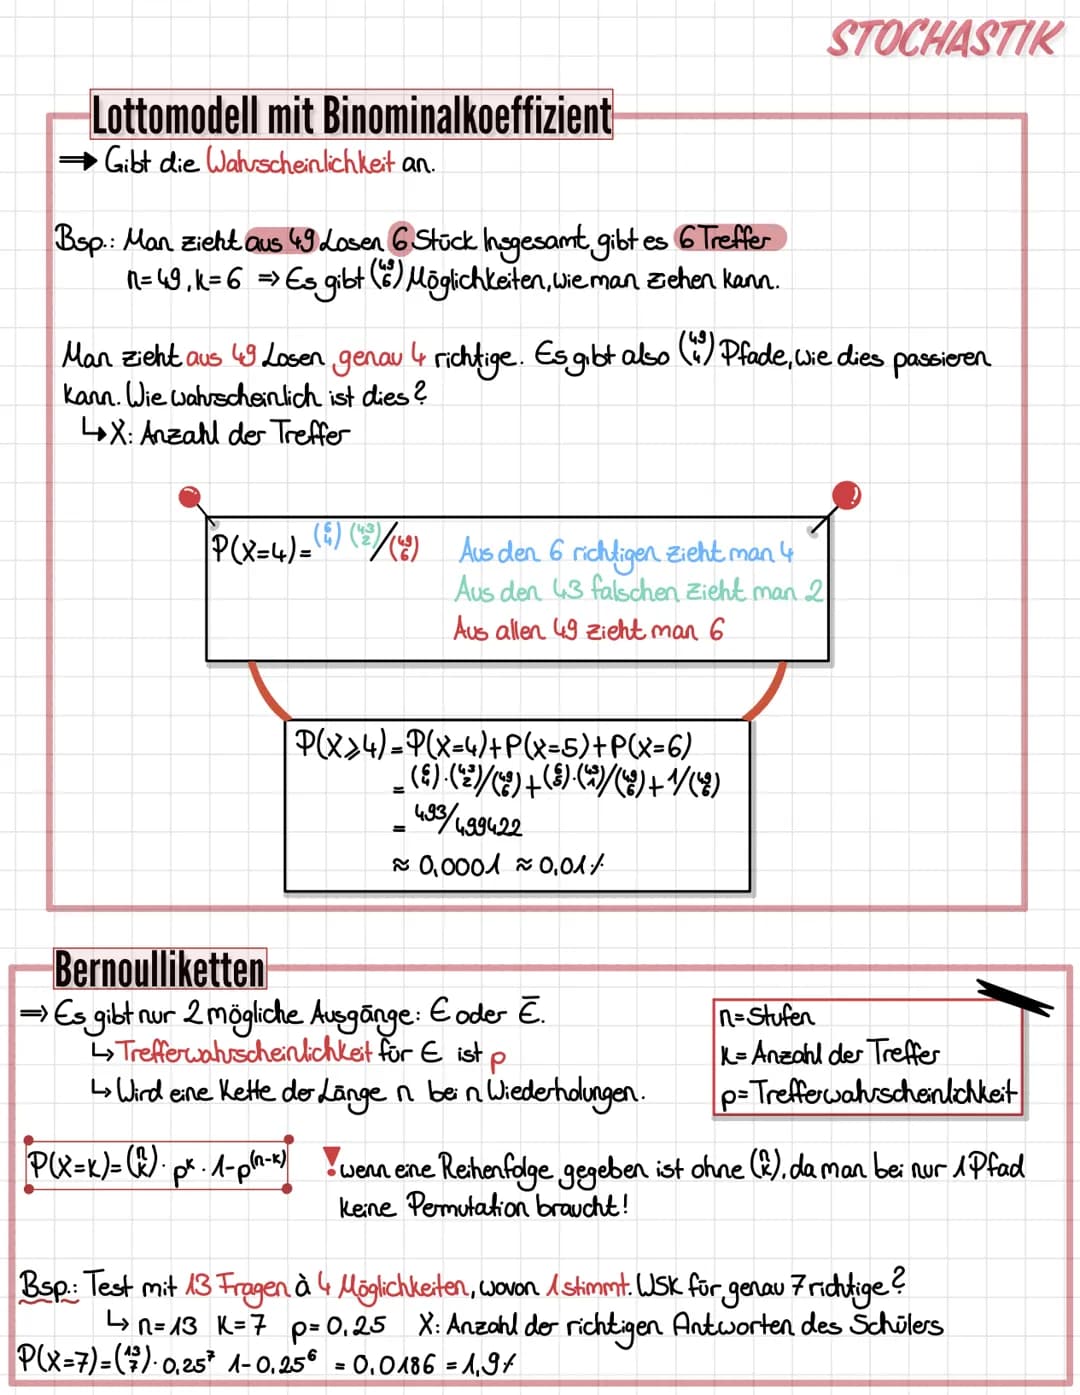 STOCHASTIK
Lottomodell mit Binominalkoeffizient
⇒ Gibt die Wahrscheinlichkeit an.
Bsp.: Man zieht aus 49 Losen 6 Stück Insgesamt gibt es 6 Treffer
n=49, k=6 ⇒ Es gibt (49 6) Möglichkeiten, wie man ziehen kann.
Man zieht aus 49 Losen genau 4 richtige. Es gibt also (49 4) Pfade, wie dies passieren
kann. Wie wahrscheinlich ist dies?
↳ X: Anzahl der Treffer
P(X=4) = (6 4) (43 2)/(49 6) Aus den 6 richtigen zieht man 4
Aus den 43 falschen zieht man 2
Aus allen 49 zieht man 6
P(X≥4) = P(X=4)+P(X=5)+P(X=6)
= (6 4)·(43 2)/(49 6)+(6 5)·(43 1)/(49 6)+1/(49 6)
= 493/499422
≈ 0,0001 ≈ 0,01%
Bernoulliketten
⇒ Es gibt nur 2 mögliche Ausgänge: E oder Ē.
↳ Trefferwahrscheinlichkeit für E ist p
↳ Wird eine Kette der Länge n bei n Wiederholungen.
n=Stufen
K= Anzahl der Treffer
p= Trefferwahrscheinlichkeit
P(X=K)=(n k)· p^k · 1-p^(n-k)
! wenn eine Reihenfolge gegeben ist ohne (n k), da man bei nur 1 Pfad
keine Permutation braucht!
Bsp.: Test mit 13 Fragen à 4 Möglichkeiten, wovon 1 stimmt. WSK für genau 7 richtige?
↳ n=13 K=7 p=0,25 X: Anzahl der richtigen Antworten des Schülers
P(X=7)=(13 7)· 0,25⁷ 1-0,25⁶ = 0,0186 = 1,9%